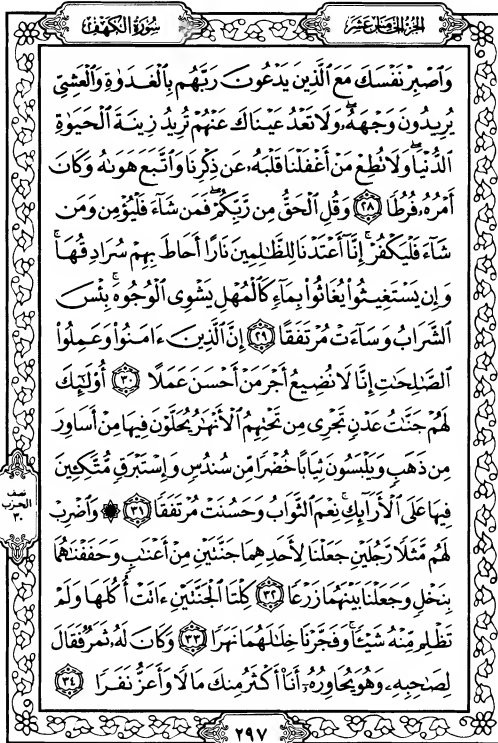 سُورَةُ الكَهْفِ
الجُزْءُ الخَامِسَ عَشَرَ
وَٱصْبِرْ نَفْسَكَ مَعَ ٱلَّذِينَ يَدْعُونَ رَبَّهُم بِٱلْغَدَوٰةِ وَٱلْعَشِىِّ
يُرِيدُونَ وَجْهَهُۥ وَلَا تَعْدُ عَيْنَاكَ عَنْهُمْ تُرِيدُ زِينَةَ ٱلْحَيَوٰةِ
ٱلدُّنْيَا وَلَا تُطِعْ مَنْ أَغْفَلْنَا قَلْبَهُۥ عَن ذِكْرِنَا وَٱتَّبَعَ هَوَىٰهُ وَكَانَ
أَمْرُهُۥ فُرُطًا ٢٨ وَقُلِ ٱلْحَقُّ مِن رَّبِّكُمْ فَمَن شَآءَ فَلْيُؤْمِن وَمَن
شَآءَ فَلْيَكْفُرْ إِنَّآ أَعْتَدْنَا لِلظَّٰلِمِينَ نَارًا أَحَاطَ بِهِمْ سُرَادِقُهَا
وَإِن يَسْتَغِيثُوا۟ يُغَاثُوا۟ بِمَآءٍ كَٱلْمُهْلِ يَشْوِى ٱلْوُجُوهَ بِئْسَ
ٱلشَّرَابُ وَسَآءَتْ مُرْتَفَقًا ٢٩ إِنَّ ٱلَّذِينَ ءَامَنُوا۟ وَعَمِلُوا۟
ٱلصَّٰلِحَٰتِ إِنَّا لَا نُضِيعُ أَجْرَ مَنْ أَحْسَنَ عَمَلًا ٣٠ أُو۟لَٰٓئِكَ
لَهُمْ جَنَّٰتُ عَدْنٍ تَجْرِى مِن تَحْتِهِمُ ٱلْأَنْهَٰرُ يُحَلَّوْنَ فِيهَا مِنْ أَسَاوِرَ
مِن ذَهَبٍ وَيَلْبَسُونَ ثِيَابًا خُضْرًا مِّن سُندُسٍ وَإِسْتَبْرَقٍ مُّتَّكِـِٔينَ
فِيهَا عَلَى ٱلْأَرَآئِكِ نِعْمَ ٱلثَّوَابُ وَحَسُنَتْ مُرْتَفَقًا ٣١ ۞ وَٱضْرِبْ
لَهُم مَّثَلًا رَّجُلَيْنِ جَعَلْنَا لِأَحَدِهِمَا جَنَّتَيْنِ مِنْ أَعْنَٰبٍ وَحَفَفْنَٰهُمَا
بِنَخْلٍ وَجَعَلْنَا بَيْنَهُمَا زَرْعًا ٣٢ كِلْتَا ٱلْجَنَّتَيْنِ ءَاتَتْ أُكُلَهَا وَلَمْ
تَظْلِم مِّنْهُ شَيْـًٔا وَفَجَّرْنَا خِلَٰلَهُمَا نَهَرًا ٣٣ وَكَانَ لَهُۥ ثَمَرٌ فَقَالَ
لِصَٰحِبِهِۦ وَهُوَ يُحَاوِرُهُۥٓ أَنَا۠ أَكْثَرُ مِنكَ مَالًا وَأَعَزُّ نَفَرًا ٣٤
نصف
الحزب
٣٠
٢٩٧